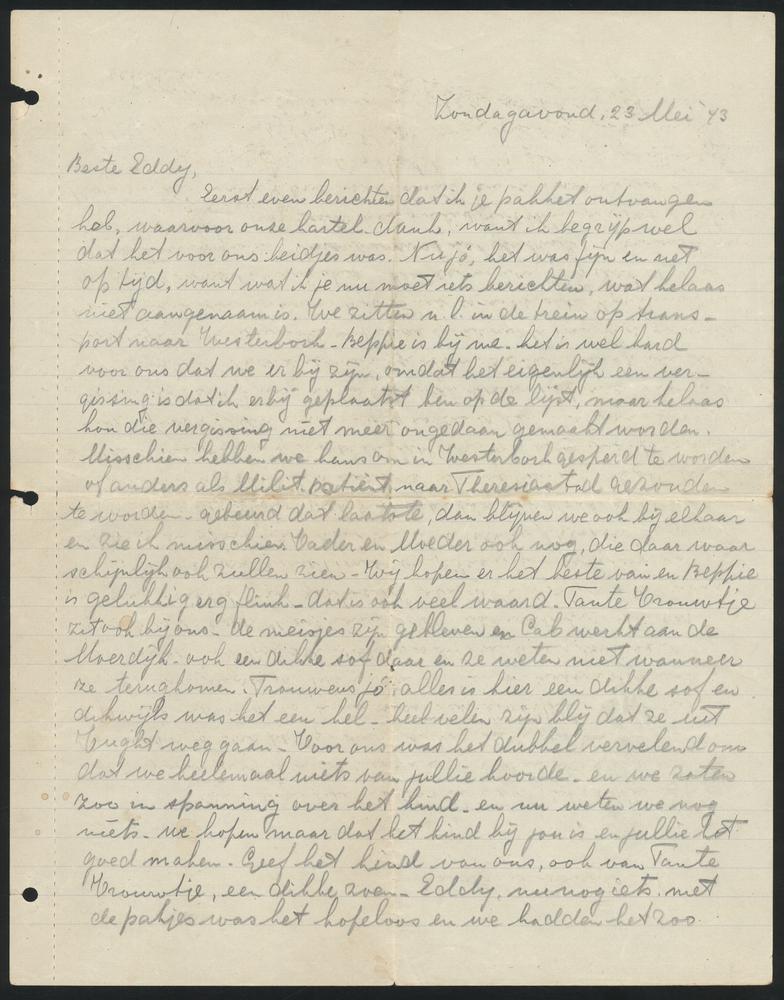 Zondagavond, 23 Mei '43
Beste Eddy,
Eerst even berichten dat ik je pakket ontvangen
heb, waarvoor onze hartel. dank, want ik begrijp wel
dat het voor ons beidjes was. Nu jô, het was fijn en net
op tijd, want wat ik je nu moet iets berichten, wat helaas
niet aangenaam is. We zitten n.l. in de trein op trans-
port naar Westerbork - Beppie is bij me - het is wel hard
voor ons dat we er bij zijn, omdat het eigenlijk een ver-
gissing is dat ik erbij geplaatst ben op de lijst, maar helaas
kon die vergissing niet meer ongedaan gemaakt worden.
Misschien hebben we kans om in Westerbork gesperd te worden
of anders als Milit. patient naar Theresiastad gezonden
te worden - gebeurd dat laatste, dan blijven we ook bij elkaar
en zie ik misschien Vader en Moeder ook nog, die daar waar
schijnlijk ook zullen zien - Wij hopen er het beste van en Beppie
is gelukkig erg flink - dat is ook veel waard. Tante Vrouwtje
zit ook bij ons - de meisjes zijn gebleven en Cab werkt aan de
Moerdijk - ook een dikke sof daar en ze weten niet wanneer
ze terugkomen. Trouwens jô, alles is hier een dikke sof en
dikwijls was het een hel - heel velen zijn blij dat ze uit
Vught weggaan - Voor ons was het dubbel vervelend om
dat we heelemaal niets van jullie hoorde - en we zaten
zoo in spanning over het kind - en nu weten we nog
niets - we hopen maar dat het kind bij jou is en jullie het
goed maken - Geef het kind van ons, ook van Tante
Vrouwtje, een dikke zoen - Eddy, nu nog iets. met
de pakjes was het hopeloos en we hadden het zoo